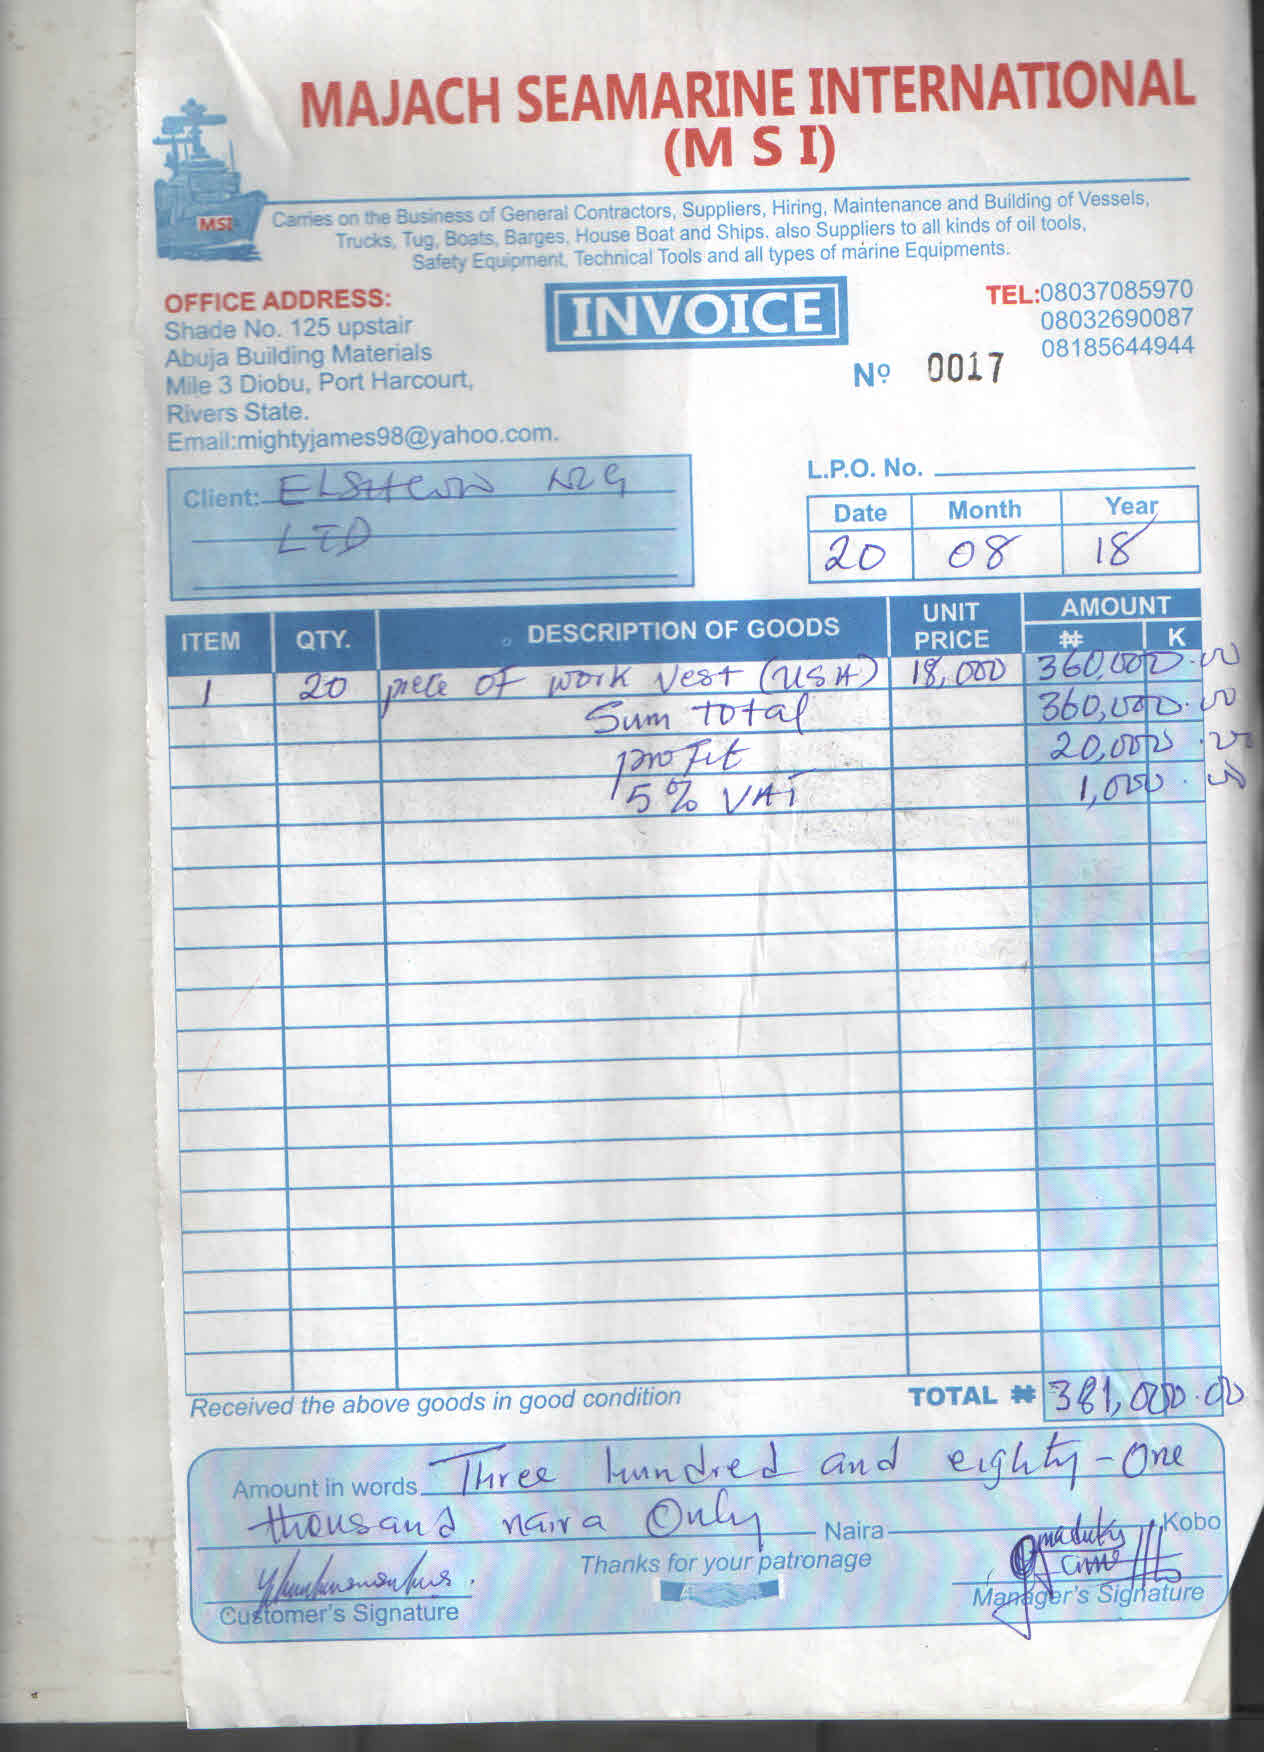 MAJACH SEAMARINE INTERNATIONAL
(M S I)
MSI
Carries on the Business of General Contractors, Suppliers, Hiring, Maintenance and Building of Vessels,
Trucks, Tug, Boats, Barges, House Boat and Ships. also Suppliers to all kinds of oil tools,
Safety Equipment, Technical Tools and all types of marine Equipments.
OFFICE ADDRESS:
Shade No. 125 upstair
Abuja Building Materials
Mile 3 Diobu, Port Harcourt,
Rivers State.
Email:mightyjames98@yahoo.com.
INVOICE
TEL:08037085970
08032690087
08185644944
Nº 0017
Client:
LTD
L.P.O. No.
Date Month Year
20 08 18
ITEM QTY. DESCRIPTION OF GOODS UNIT PRICE AMOUNT ₦ K
1 20 piece of work vest (USA) 18,000 360,000.00
Sum total 360,000.00
profit 20,000.00
5% VAT 1,000.00
Received the above goods in good condition
TOTAL ₦ 381,000.00
Amount in words Three hundred and eighty-one
thousand naira Only Naira Kobo
Thanks for your patronage
Customer's Signature
Manager's Signature